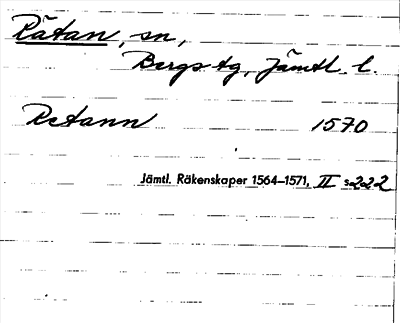 Rätan, sn,
Bergs tg, Jämtl. l.
Retann 1570
Jämtl. Räkenskaper 1564–1571, II s222